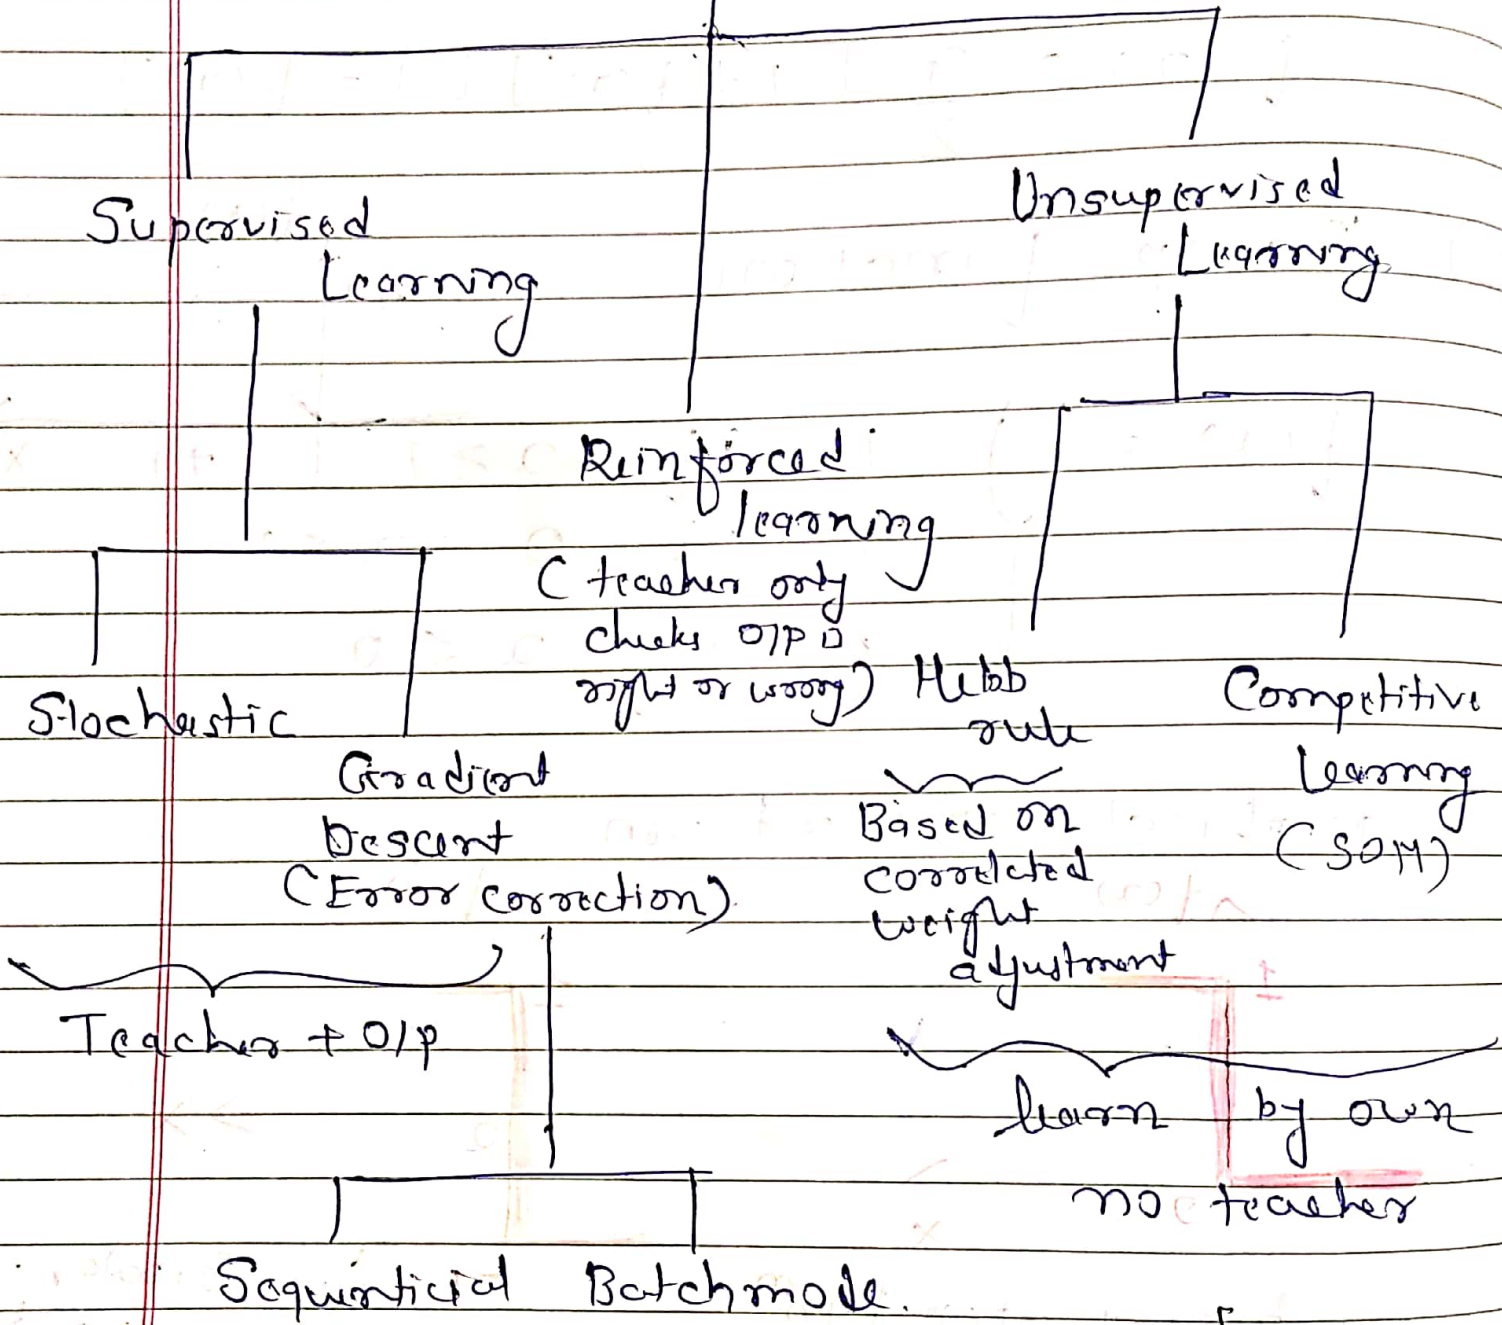 Supervised
Learning
Unsupervised
Learning
Reinforced
learning
( teacher only
checks O/P is
right or wrong)
Stochastic
Gradient
Descent
(Error correction)
Hebb
rule
Based on
correlated
weight
adjustment
Competitive
learning
(SOM)
Teacher + O/P
learn by own
no teacher
Sequenticial Batchmode.